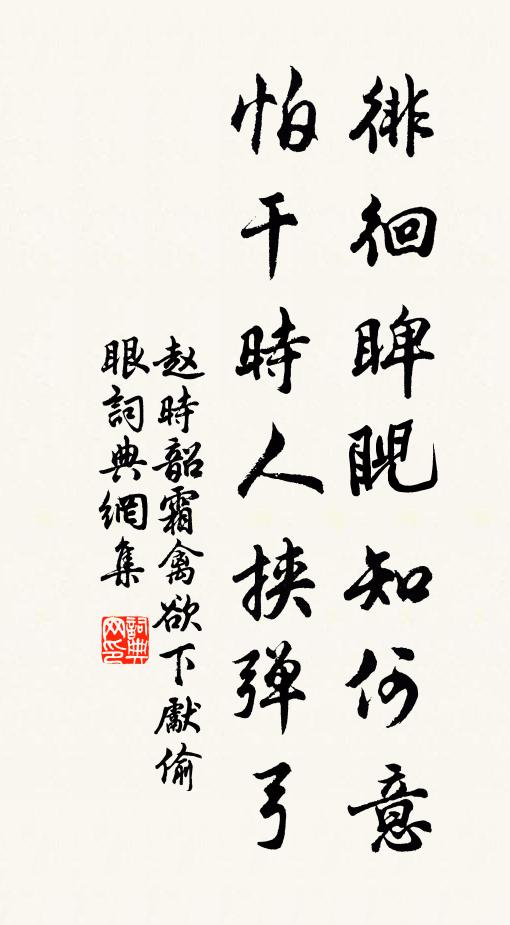 徘徊睥睨知何意
怕干時人挾弹弓
赵時韶霜禽欲下獻偷
眼詞典網集
詞典
网印